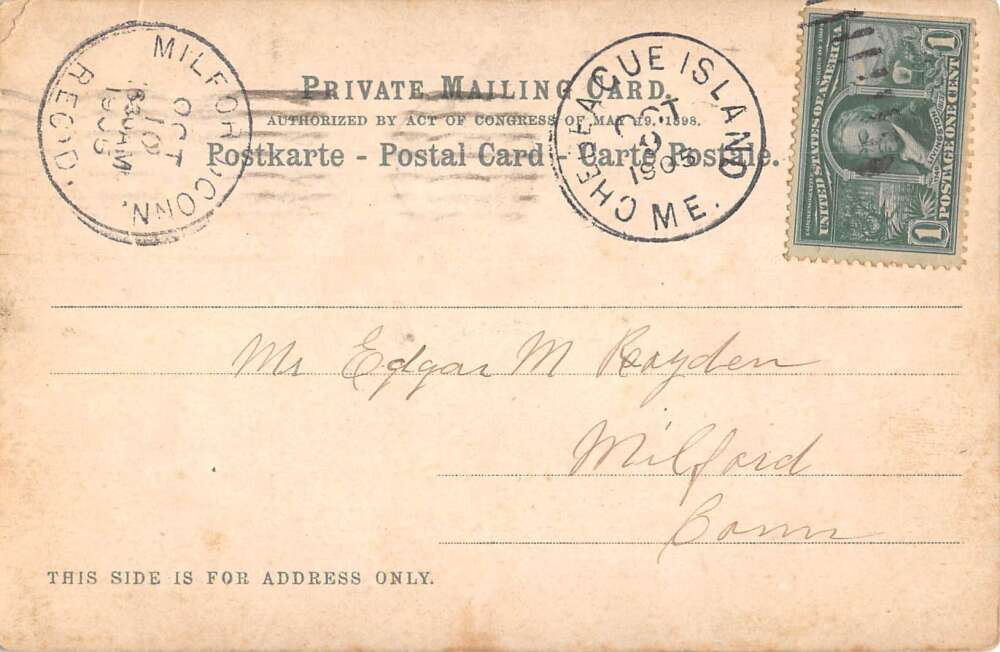 MILFORD CONN.
OCT
10
1905
REC'D.
PRIVATE MAILING CARD.
AUTHORIZED BY ACT OF CONGRESS OF MAY 19, 1898.
Postkarte - Postal Card - Carte Postale.
CHEBEAGUE ISLAND
OCT
9
1905
ME.
UNITED STATES OF AMERICA
POSTAGE ONE CENT
1
1
Mr Edgar M Royden
Milford
Conn
THIS SIDE IS FOR ADDRESS ONLY.